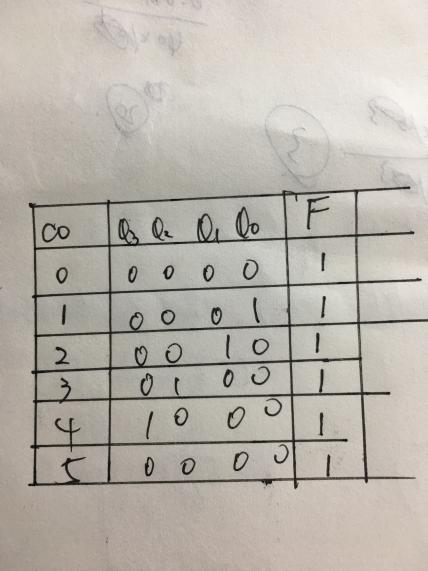 CO Q3 Q2 Q1 Q0 F
0 0 0 0 0 1
1 0 0 0 1 1
2 0 0 1 0 1
3 0 1 0 0 1
4 1 0 0 0 1
5 0 0 0 0 1